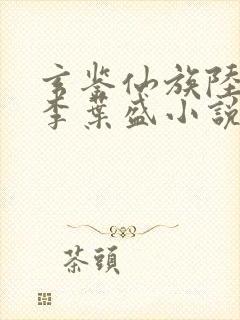 玄鉴仙族陸
李葉盛小說
茶頭